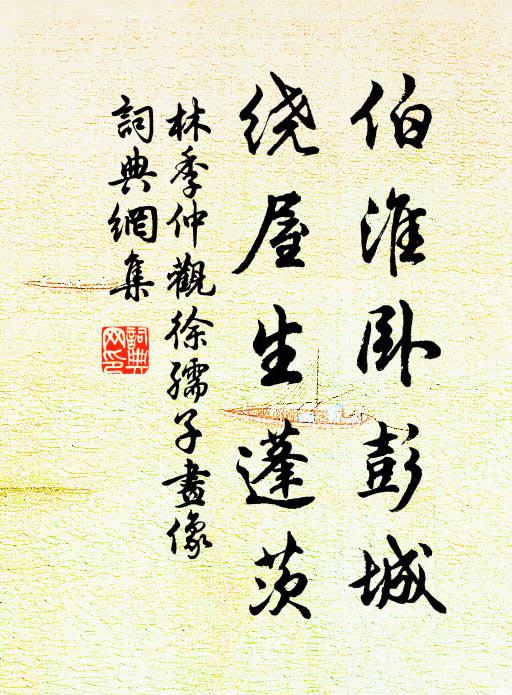 伯淮卧彭城
绕屋生蓬茨
林季仲觀徐孺子畫像
詞典網集
詞典網印